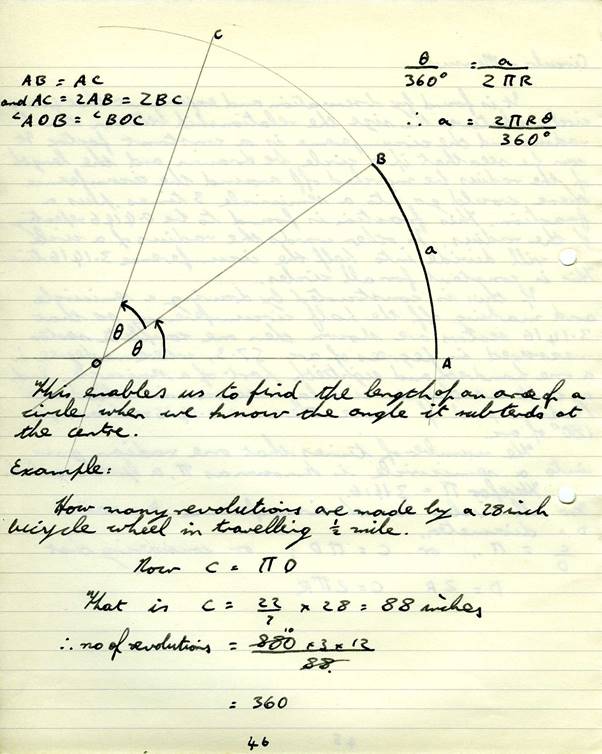 C
AB = AC
and AC = 2AB = 2BC
∠AOB = ∠BOC
θ/360° = a/2πR
∴ a = 2πRθ/360°
B
a
θ
θ
O
A
This enables us to find the length of an arc of a
circle when we know the angle it subtends at
the centre.
Example:
How many revolutions are made by a 28 inch
bicycle wheel in travelling ½ mile.
Now C = πD
That is C = 22/7 × 28 = 88 inches
∴ no of revolutions = 880 10 × 3 × 12 / 88
= 360
46